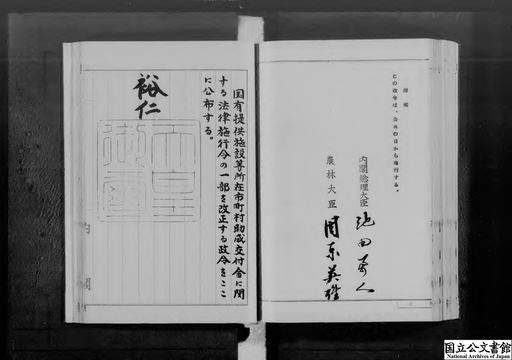 附則
この政令は、公布の日から施行する。
内閣総理大臣
池田勇人
農林大臣
周東英雄
国有提供施設等所在市町村助成交付金に関
する法律施行令の一部を改正する政令をここ
に公布する。
裕仁
天皇
御璽
内閣
国立公文書館
National Archives of Japan